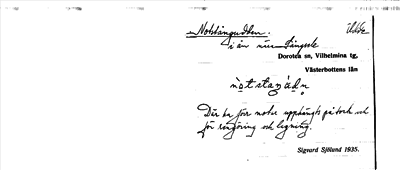 Notstängudden Udde
i ån när Långsele
Dorotea sn, Vilhelmina tg,
Västerbottens län
Där ha förr notar upphängts på tork och
för rengöring och lagning.
Sigvard Sjölund 1935.